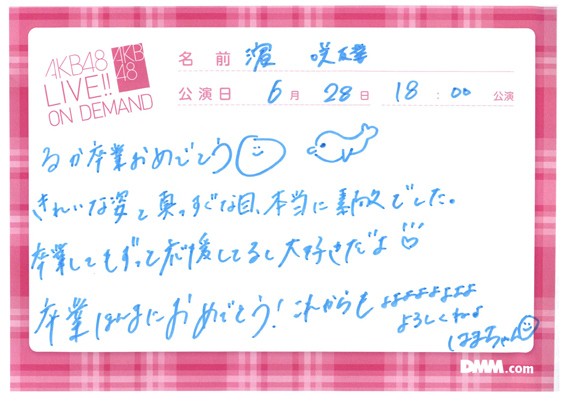 AKB48
LIVE!!
ON DEMAND
AKB
48
名前 濵 咲友菜
公演日 6月 28日 18:00 公演
るか卒業おめでとう
きれいな姿と真っすぐな目、本当に素敵でした。
卒業してもずっと応援してるし大好きだよ
卒業ほんまにおめでとう!これからも
よよよよよよよよ
よろしくねっ
はまちゃん
DMM.com